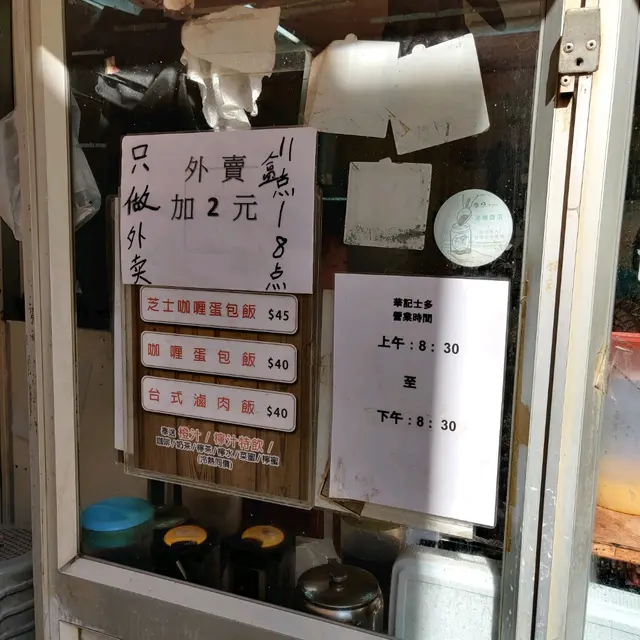 只做外卖
外賣
加2元
11点18点
芝士咖喱蛋包飯 $45
咖喱蛋包飯 $40
台式滷肉飯 $40
橙汁 / 檸汁特飲 /
(冷熱同價)
華記士多
營業時間
上午:8:30
至
下午:8:30